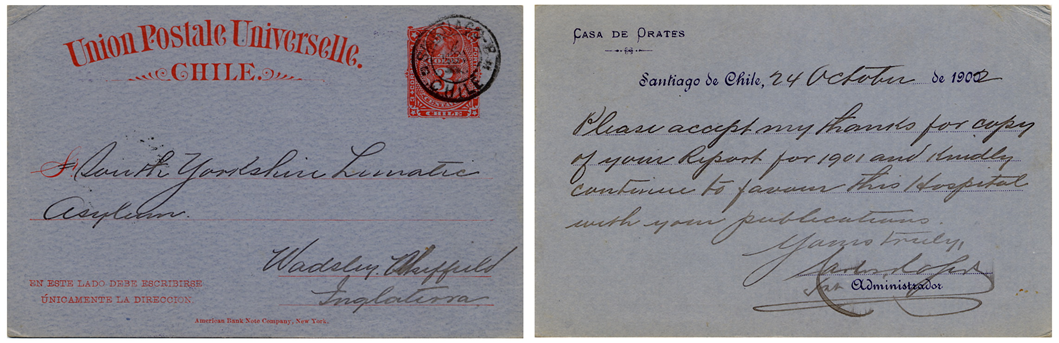 Union Postale Universelle.
CHILE.
SANTIAGO
CHILE
CENTAVOS
CHILE
S South Yorkshire Lunatic
Asylum.
Wadsley. Sheffield
Inglaterra
EN ESTE LADO DEBE ESCRIBIRSE
ÚNICAMENTE LA DIRECCION.
American Bank Note Company, New York.
CASA DE ORATES
Santiago de Chile, 24 October de 1902
Please accept my thanks for copy
of your Report for 1901 and kindly
continue to favour this Hospital
with your publications.
Yours truly,
Administrador